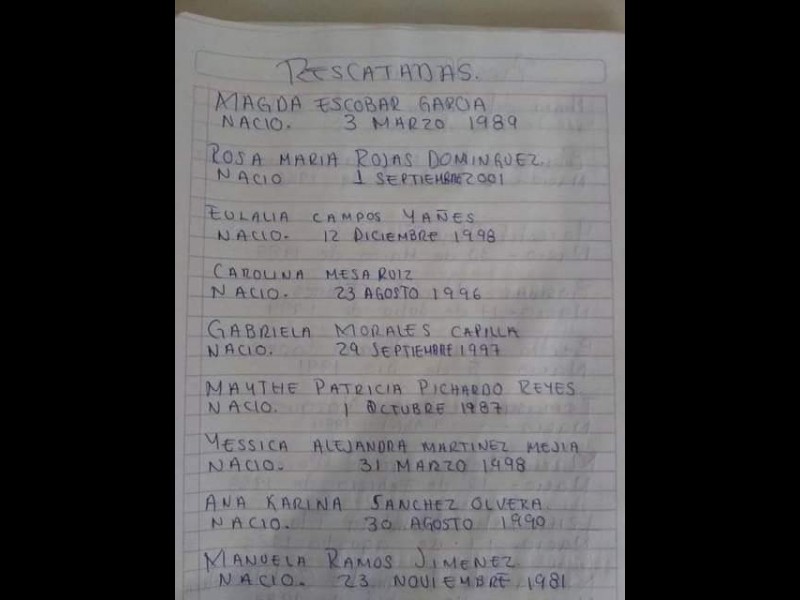 RESCATADAS.
MAGDA ESCOBAR GARCIA
NACIO. 3 MARZO 1989
ROSA MARIA ROJAS DOMINGUEZ.
NACIO 1 SEPTIEMBRE 2001
EULALIA CAMPOS YAÑES
NACIO. 12 DICIEMBRE 1998
CAROLINA MESA RUIZ
NACIO. 23 AGOSTO 1996
GABRIELA MORALES CAPILLA
NACIO. 29 SEPTIEMBRE 1997
MAYTHE PATRICIA PICHARDO REYES
NACIO. 1 OCTUBRE 1987
YESSICA ALEJANDRA MARTINEZ MEJIA
NACIO. 31 MARZO 1998
ANA KARINA SANCHEZ OLVERA
NACIO. 30 AGOSTO 1990
MANUELA RAMOS JIMENEZ
NACIO. 23 NOVIEMBRE 1981